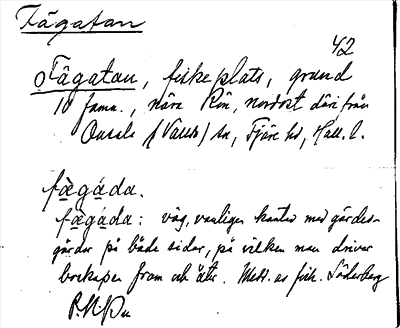 Fägatan
42
Fägatan, fiskeplats, grund
10 famn., nära Rön, nordost därifrån
Onsala /Vallda/ sn, Fjäre hd, Hall. l.
fä̀gáda.
fägáda: väg, vanligen kantad med gärdes-
gårdar på båda sidor, på vilken man driver
boskapen fram och åter. Medd. av fisk. Söderberg